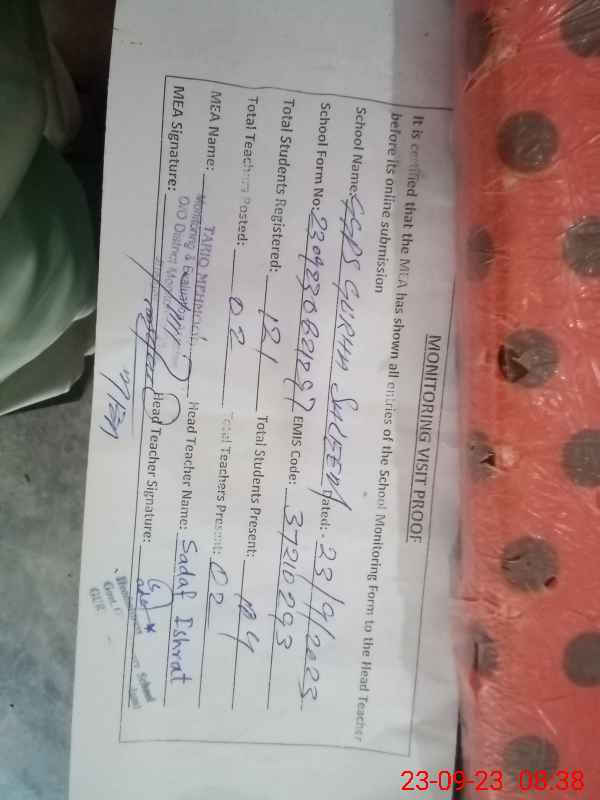 MONITORING VISIT PROOF
It is certified that the MEA has shown all entries of the School Monitoring Form to the Head Teacher
before its online submission
School Name: GGPS GURHA SALEEM Dated: 23/9/2023
School Form No: EMIS Code: 37210293
Total Students Registered: 121 Total Students Present:
Total Teachers Posted: 02 Total Teachers Present: 02
MEA Name: TARIQ MEHMOOD Head Teacher Name: Sadaf Ishrat
Monitoring & Evaluation
O/O District Monitoring
MEA Signature: Head Teacher Signature:
School
23-09-23 08:38